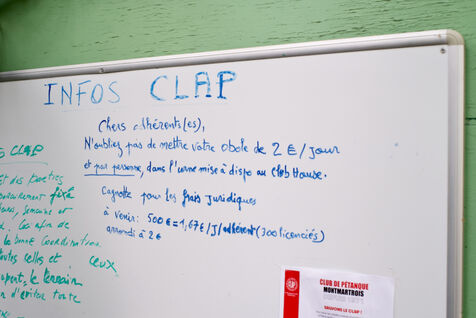 INFOS CLAP
Chers adhérent(es),
N'oubliez pas de mettre votre obole de 2 €/jour
et par personne, dans l'urne mise à dispo au Club House.
Cagnotte pour les frais juridiques
à venir: 500€ = 1,67€/J/adhérent (300 licenciés)
arrondi à 2€
S CLAP
et des parties
fixé
semaine et
afin de
la bonne coordination
toutes celles et ceux
le terrain
d'éviter toute
CLUB DE PÉTANQUE
MONTMARTROIS
SAUVONS LE CLAP !